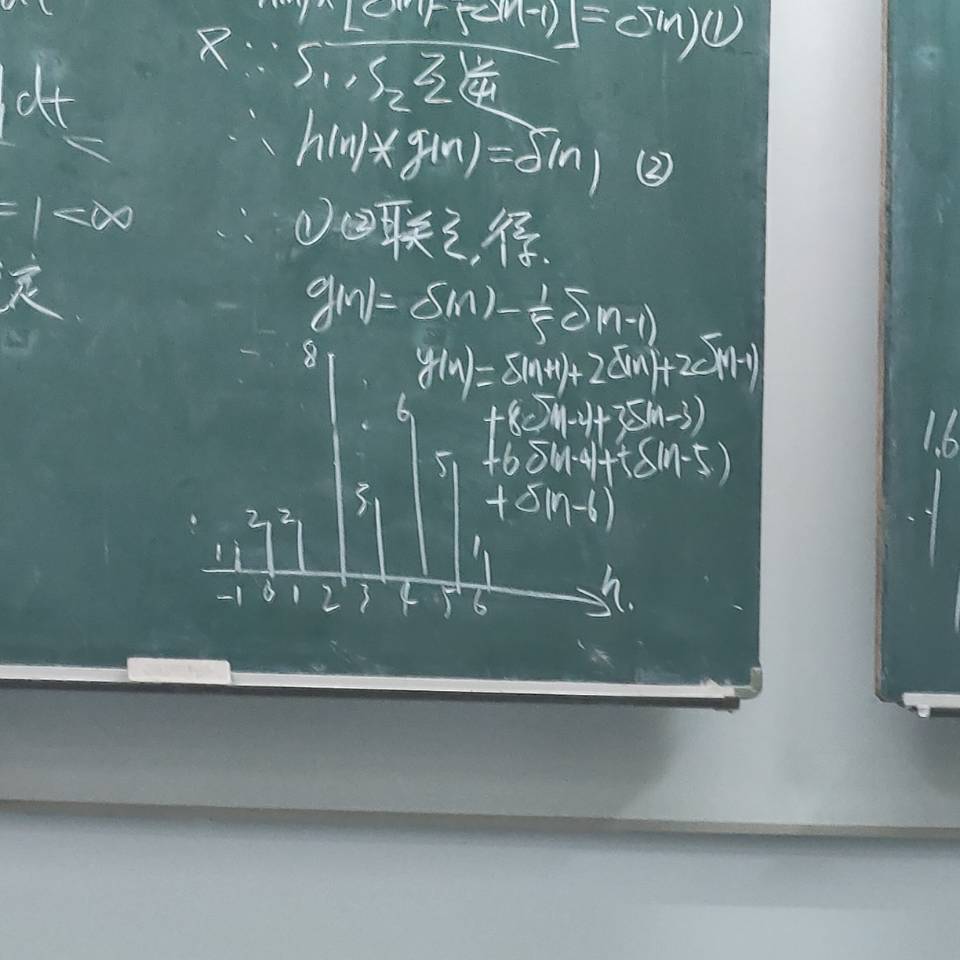 h(n)*[δ(n)-1/5δ(n-1)]=δ(n)①
又∵S₁,S₂互逆
dt
∴h(n)*g(n)=δ(n) ②
=1<∞
∴①②联立,得.
定
g(n)=δ(n)-1/5δ(n-1)
y(n)=δ(n+1)+2δ(n)+2δ(n-1)
+8δ(n-2)+3δ(n-3)
+6δ(n-4)+5δ(n-5)
+δ(n-6)
1 2 2 8 3 6 5 1
-1 0 1 2 3 4 5 6 n.
1.6